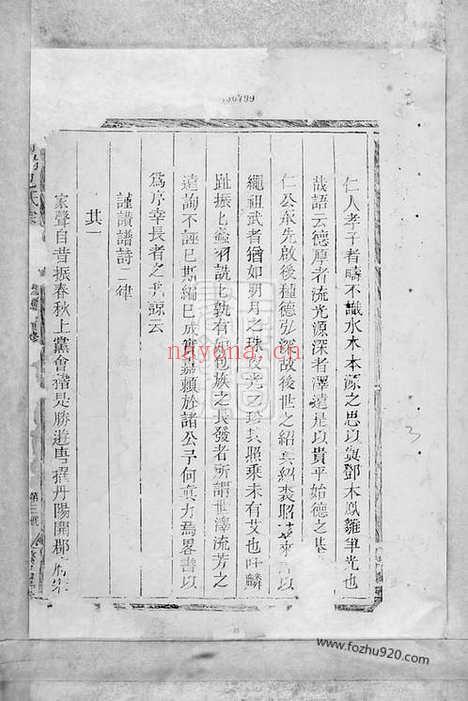 仁人孝子者疇不識水木本源之思以與鄧木鳳雛筆光也
哉語云德厚者流光源深者澤遠是以貴乎始德之基
仁公永先啟後種德弘深故後世之紹其裘昭以
繩祖武者猶如朔月之珠夜光之珍其照乘未有艾也吁麟
趾振振螽羽詵詵孰有如包族之長發者所謂世澤流芳之
遠詢不誣已斯編已成實嘉賴於諸公予何與力焉畧書以
為序幸長者之我諒云
謹讚譜詩二律
其一
家聲自昔振春秋上黨會豬是勝遊唐撰丹陽開郡宋
100799
3
nayona.cn
www.fozhu920.com